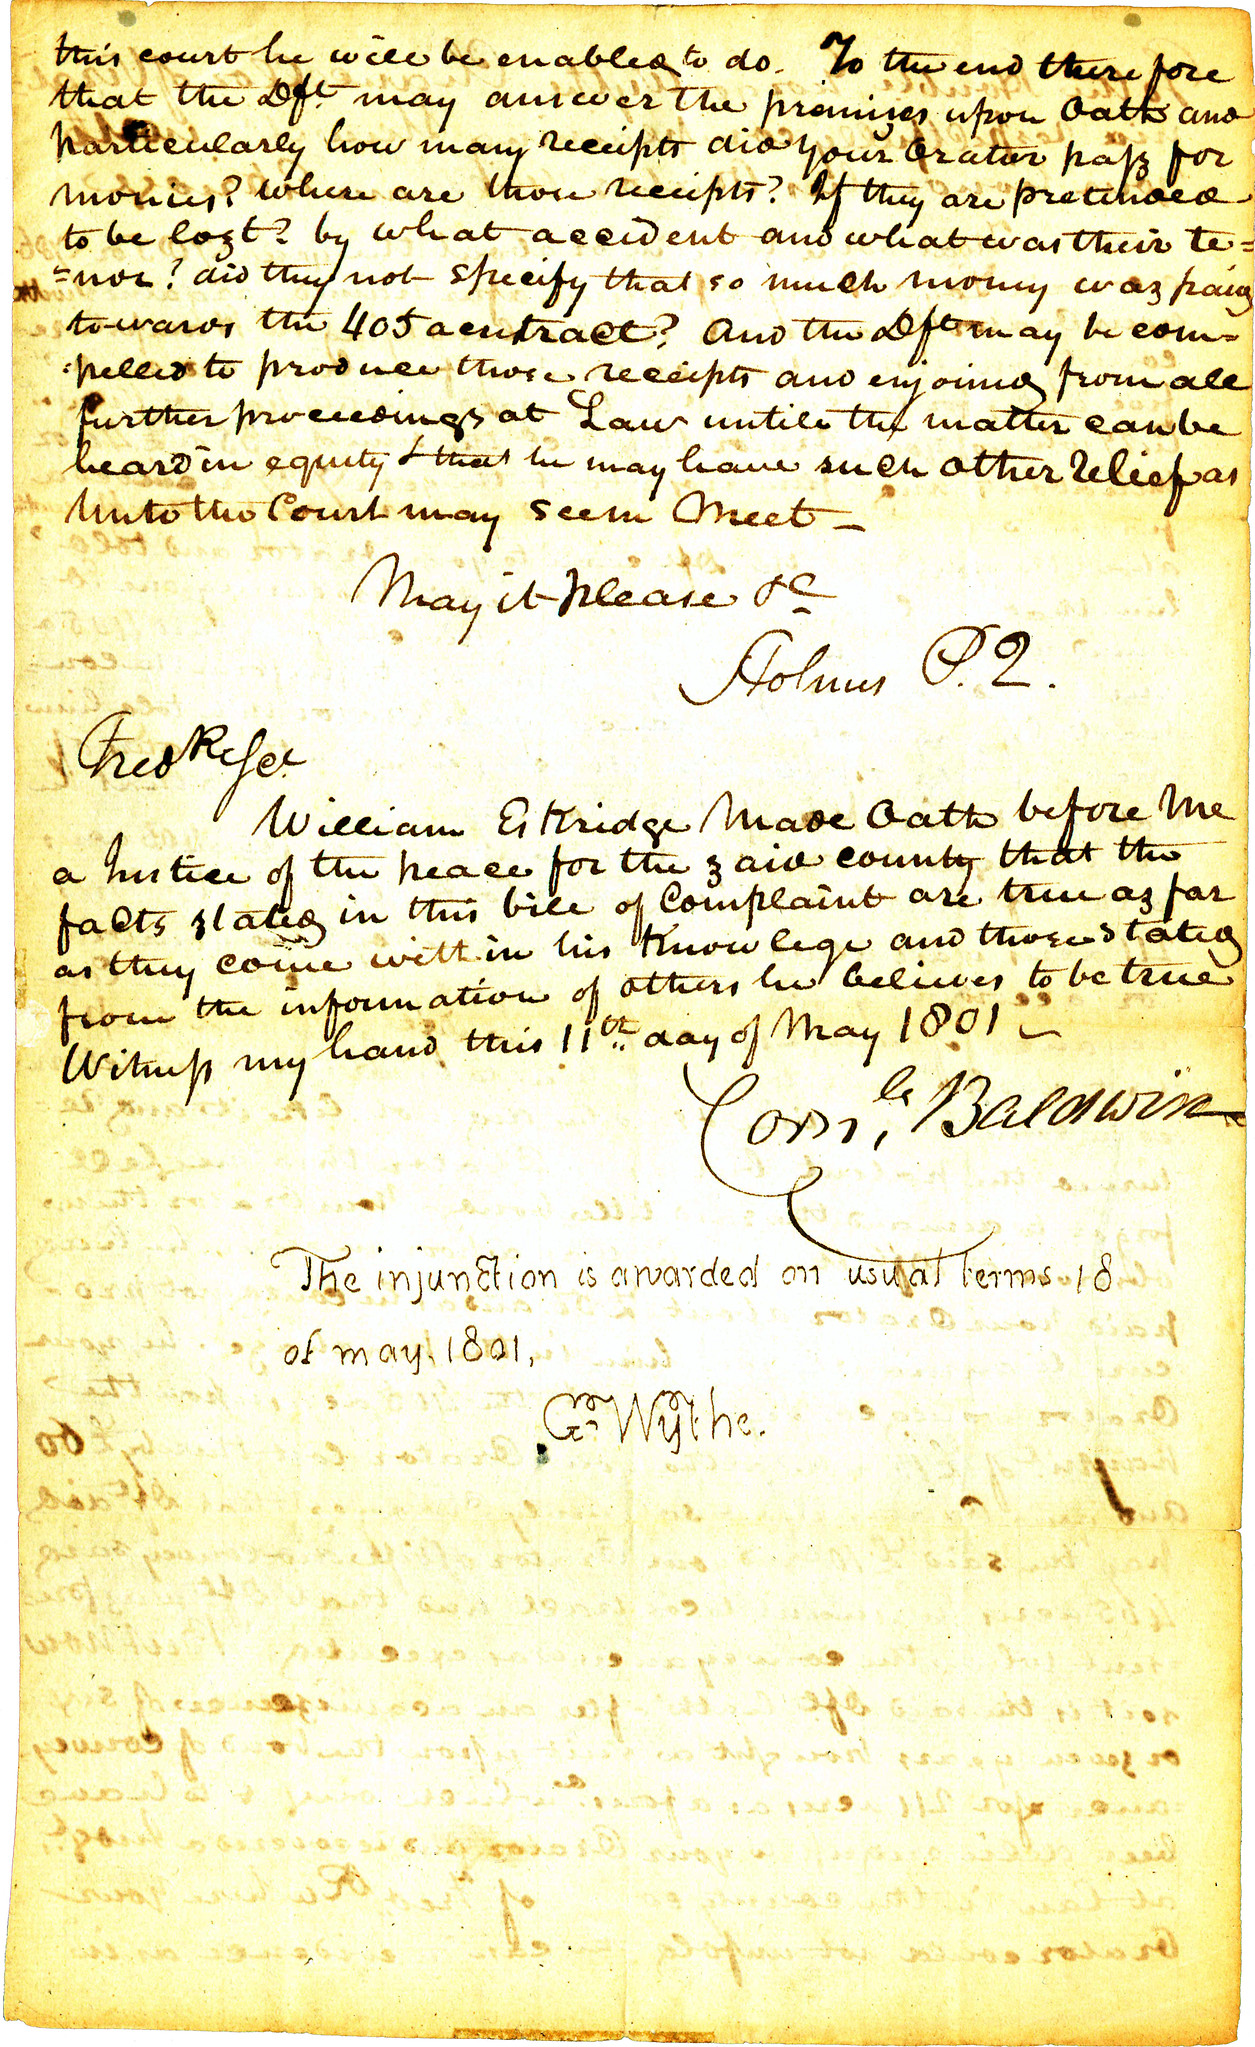 this court he will be enabled to do. To the end therefore
that the Dft. may answer the premises upon Oath and
particularly how many receipts did your Orator pass for
monies? where are those receipts? If they are pretended
to be lost? by what accident and what was their te=
=nor? did they not specify that so much money was paid
towards the 405 a contract? And the Dft may be com=
=pelled to produce those receipts and enjoined from all
further proceedings at Law untill the matter can be
heard in equity & that he may have such other relief as
unto the Court may seem Meet —
May it please &c
Holmes P. Q.
Fredk Sct
William Eskridge Made Oath before Me
a Justice of the peace for the said county that the
facts stated in this bill of Complaint are true as far
as they come within his Knowlege and those stated
from the information of others he believes to be true
Witness my hand this 11th day of May 1801
Cornls. Baldwin
The injunction is awarded on usual terms 18
of may, 1801,
G. Wythe.